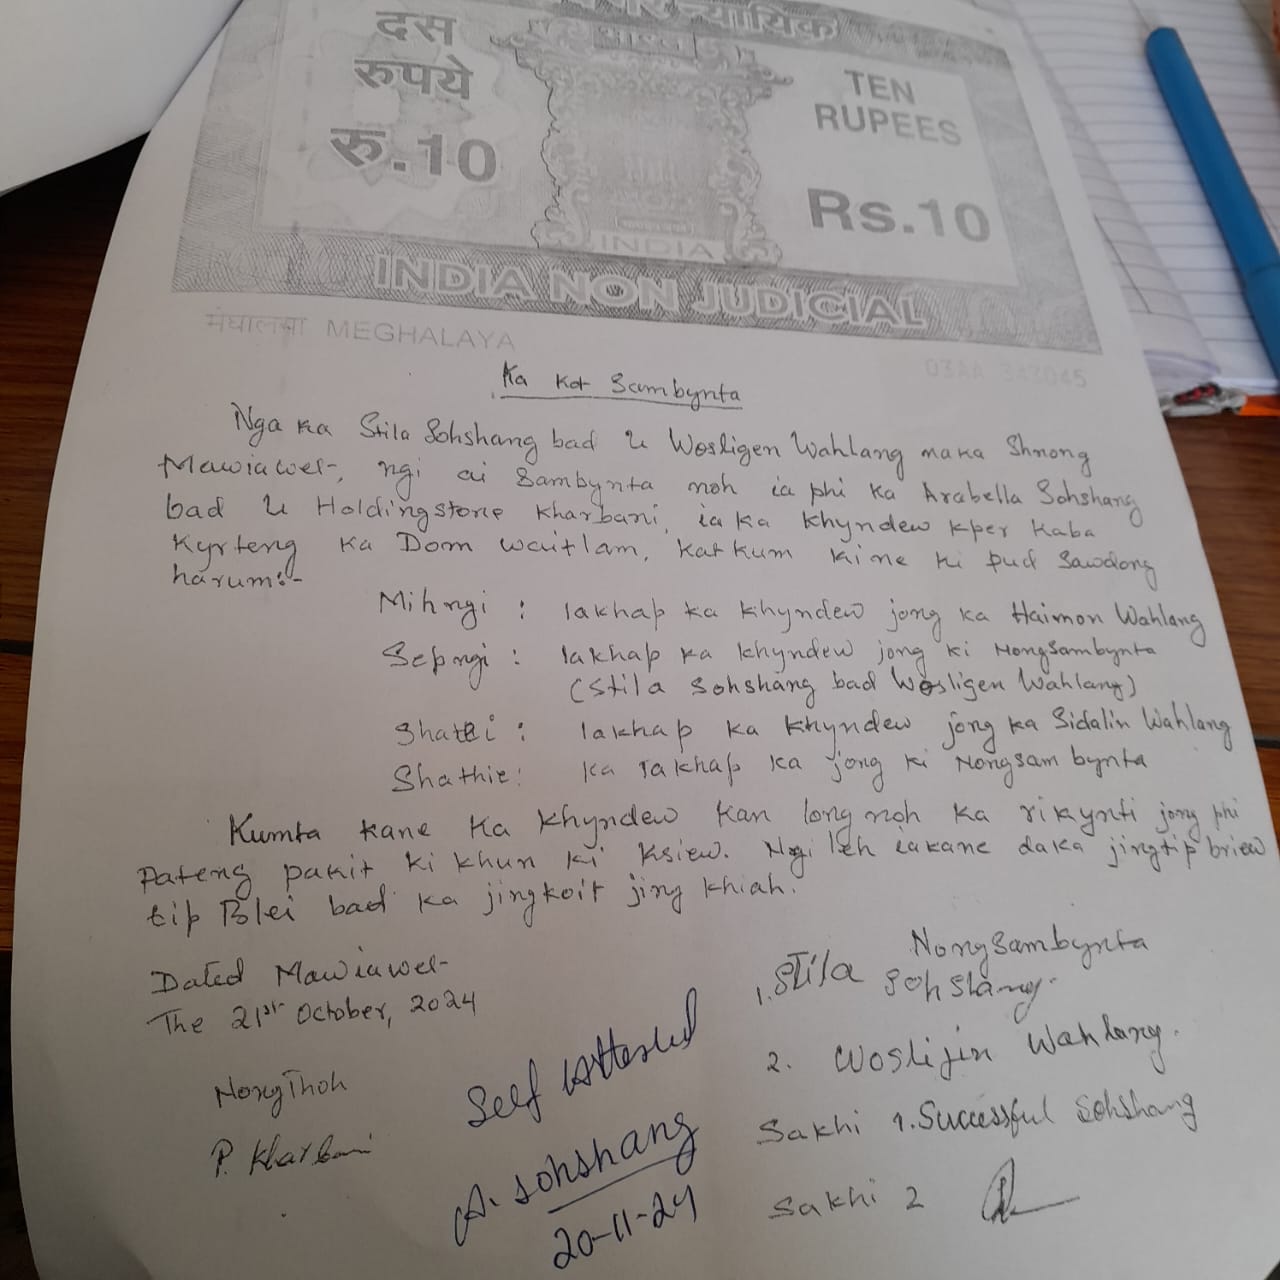 दस
रुपये
रु.10
न्यायिक
भारत
TEN
RUPEES
Rs.10
INDIA
INDIA NON JUDICIAL
मेघालया MEGHALAYA
03AA 343045
Ka Kot Sambynta
Nga Ka Stila Sohshang bad U Wosligen Wahlang naka Shnong
Mawiawet-, ngi ai Sambynta noh ia phi Ka Arabella Sohshang
bad U Holdingstone Kharbani, ia ka Khyndew Kper Kaba
Kyrteng Ka Dom waitlam, Katkum Kine Ki pud Sawdong
harum:-
Mihngi : Iakhap Ka Khyndew jong ka Haimon Wahlang
Sepngi : Iakhap Ka Khyndew jong Ki Nongsambynta
(Stila Sohshang bad Wosligen Wahlang)
Shatei : Iakhap Ka Khyndew jong Ka Sidalin Wahlang
Shathie: Ka Iakhap Ka jong Ki Nongsambynta
Kumta Kane Ka Khyndew Kan long noh Ka rikynti jong phi
Pateng pakit Ki Khun Ki Ksiew. Ngi leh iakane daka jingtip briew
tip Blei bad Ka jingkoit jing Khiah.
Dated Mawiawet-
The 21st October, 2024
Nongsambynta
1. Stila Sohshang.
2. Woslijin Wahlang.
NongThoh
P. Kharbani
Self Attested
A. Sohshang
20-11-24
Sakhi 1. Successful Sohshang
Sakhi 2